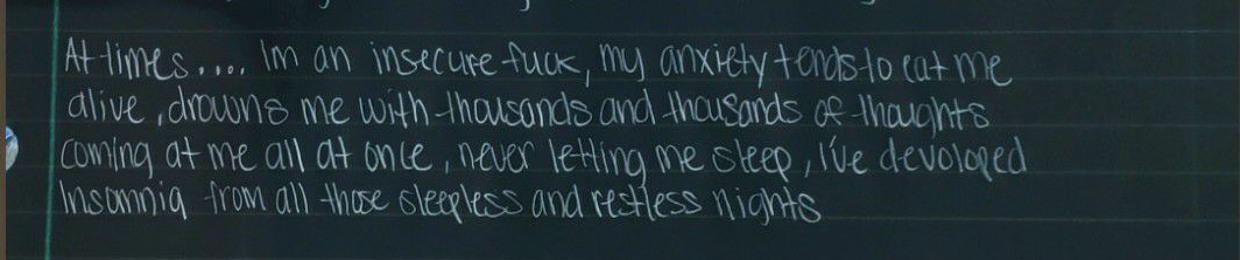 At times.... Im an insecure fuck, my anxiety tends to eat me
alive, drowns me with thousands and thousands of thoughts
coming at me all at once, never letting me sleep, I've devoloped
Insomnia from all those sleepless and restless nights